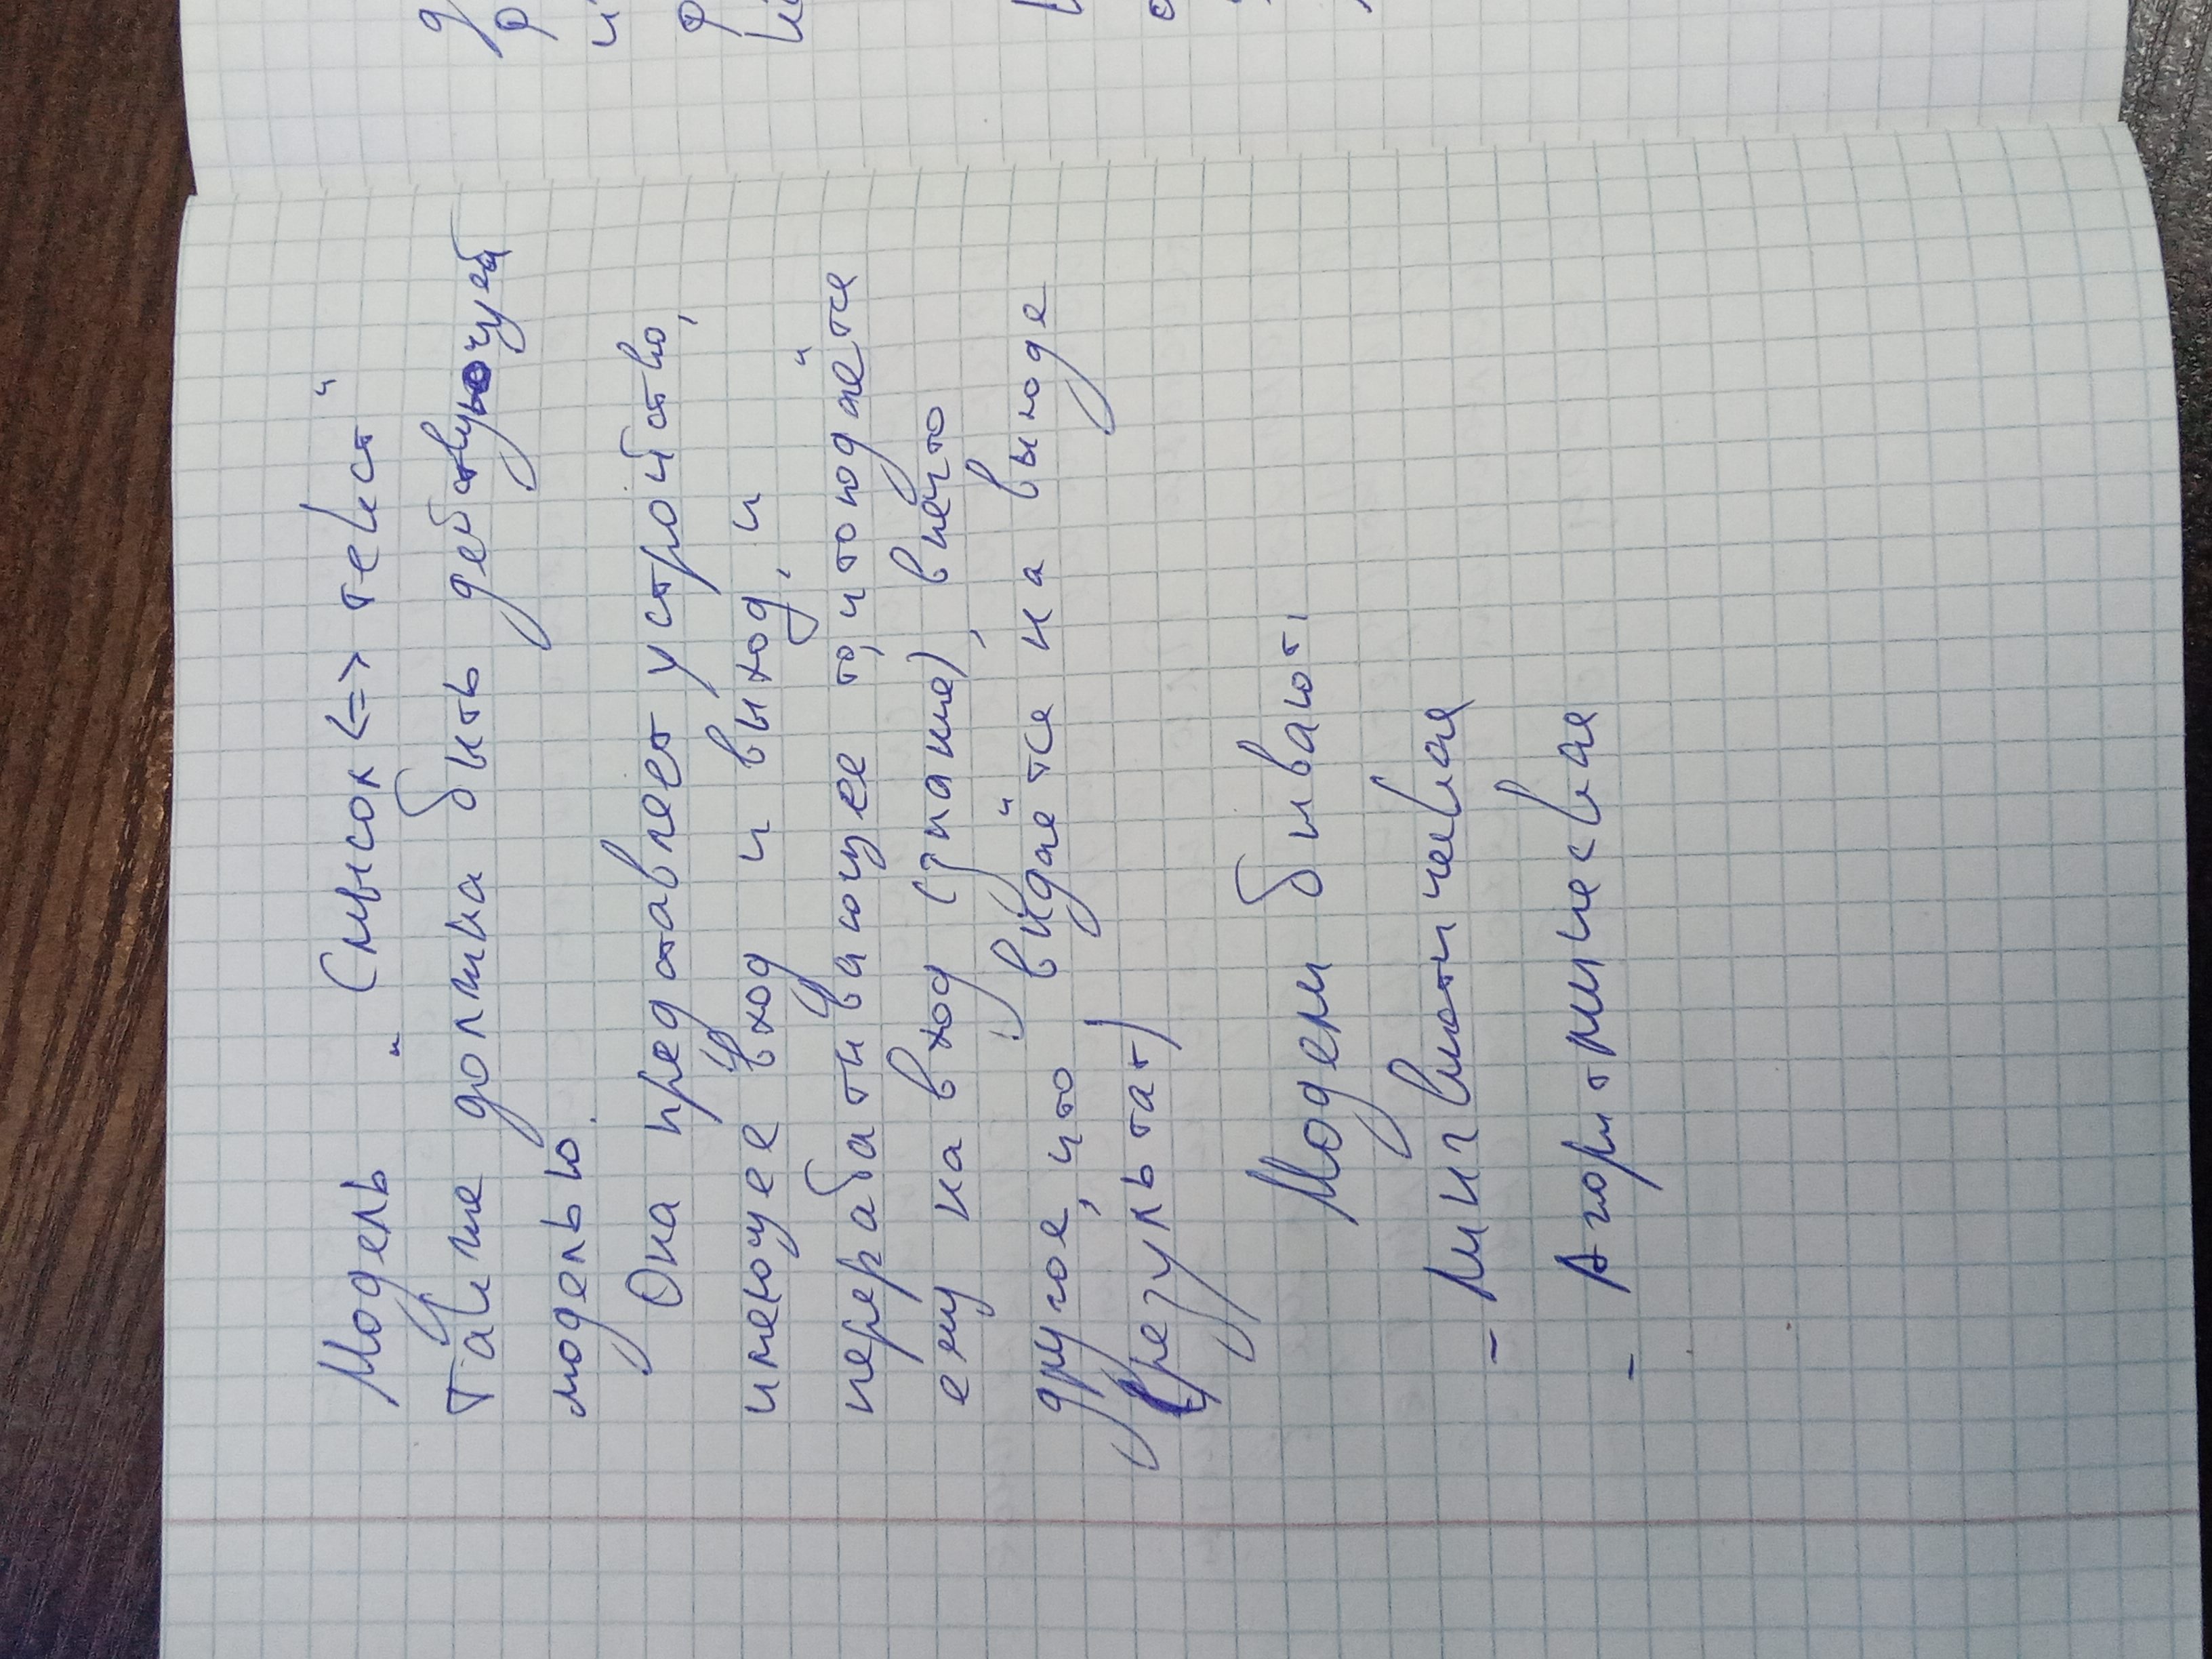 Модель „Смысол <=> текст“
также должна быть действующей
моделью.
Она представляет устройство,
имеющее вход и выход, и
перерабатывающее то, что подаётся
ему на вход (знание), в нечто
другое, что выдаётся на выходе
(результат)
Модели бывают:
- Лингвистическая
- Агоритмическая